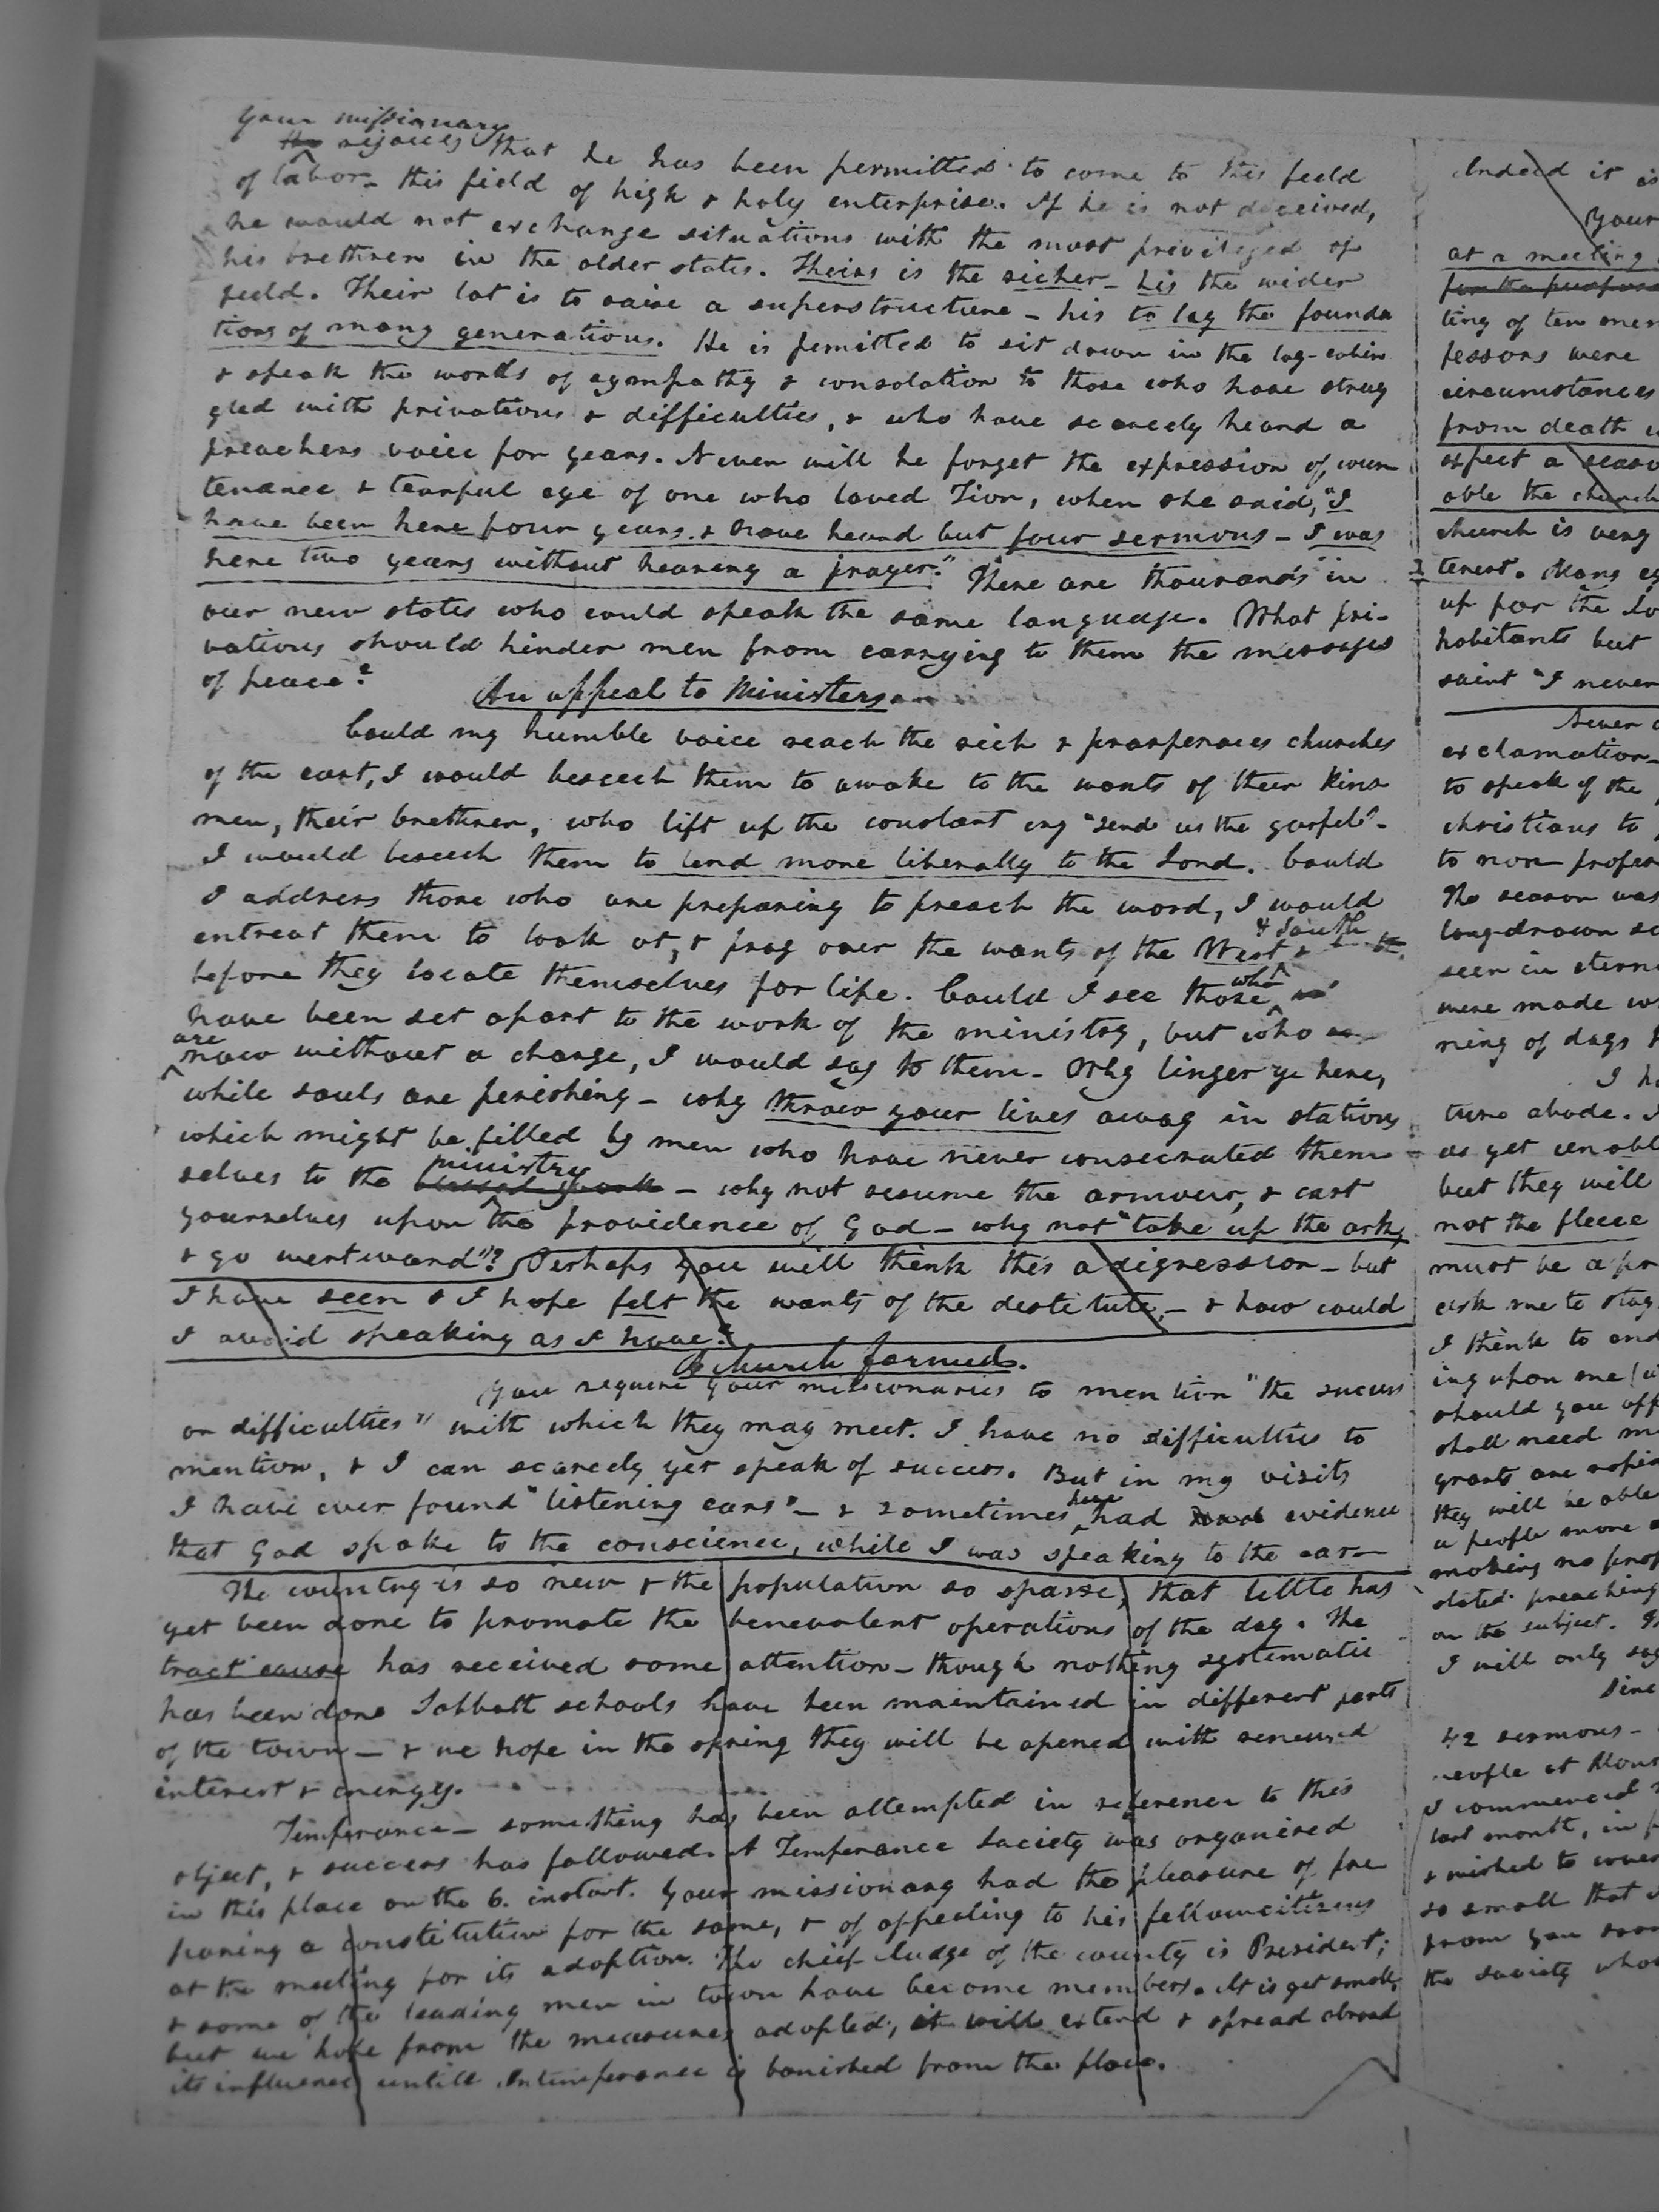 Your missionary
He rejoices that he has been permitted to come to this field
of labor - this field of high & holy enterprise. If he is not deceived,
he would not exchange situations with the most privileged of
his brethren in the older states. Theirs is the richer - his the wider
field. Their lot is to raise a superstructure - his to lay the founda
tions of many generations. He is pemitted to sit down in the log-cabin
& speak the words of sympathy & consolation to those who have strug
gled with privations & difficulties, & who have scarcely heard a
preachers voice for years. Never will he forget the expression of coun
tenance & tearful eye of one who loved Zion, when she said, "I
have been here four years & have heard but four sermons - I was
here two years without hearing a prayer." There are thousands in
our new states who could speak the same language. What pri-
vations should hinder men from carrying to them the messages
of peace?
An appeal to Ministers
Could my humble voice reach the rich & prosperous churches
of the east, I would beseech them to awake to the wants of their kins
men, their brethren, who lift up the constant cry "send us the gospel" -
I would beseech them to lend more liberally to the Lord. Could
I address those who are preparing to preach the word, I would
entreat them to look at, & pray over the wants of the West & South
before they locate themselves for life. Could I see those who
have been set apart to the work of the ministry, but who
are now without a charge, I would say to them - Why linger ye here,
while souls are perishing - why throw your lives away in stations
which might be filled by men who have never consecrated them
selves to the ministry blessed work - why not resume the armour, & cast
yourselves upon the providence of God - why not "take up the ark,
& go westward"? Perhaps you will think this a digression - but
I have seen & I hope felt the wants of the destitute, - & how could
I avoid speaking as I have?
A church formed.
You require your missionaries to mention "the success
or difficulties" with which they may meet. I have no difficulties to
mention, & I can scarcely yet speak of success. But in my visits
I have ever found "listening ears" - & sometimes have had evidence
that God spoke to the conscience, while I was speaking to the ear -
The country is so new & the population so sparse, that little has
yet been done to promote the benevolent operations of the day. The
tract cause has received some attention - though nothing systematic
has been done Sabbath schools have been maintained in different parts
of the town - & we hope in the spring they will be opened with renewed
interest & energy.
Temperance - something has been attempted in reference to this
object, & success has followed. A Temperance Society was organized
in this place on the 6. instant. Your missionary had the pleasure of pre
paring a constitution for the same, & of appealing to his fellowcitizens
at the meeting for its adoption. The chief Judge of the county is President;
& some of the leading men in town have become members. It is yet small,
but we hope from the measures adopted, it will extend & spread abroad
its influence untill Intemperance is banished from the place.
Indeed it is
Your
at a meeting
for the purpose
ting of ten mem
fessors were
circumstances
from death
expect a seaso
able the church
church is very
terest. Many
up for the
habitants but
saint "I never
Never
exclamation -
to speak of the
christians to
to non-profes
The season was
long-drawn
seen in etern
were made
ning of days
ture abode. I
as yet unabl
but they will
not the fleece
must be a pr
ask me to stay
I think to
ing upon me
should you off
shall need
grants are
they will be able
a people more
making no prof
stated preaching
on the subject.
I will only say
Sinc
42 sermons -
people at
I commenced
last month, in
& wished to
so small that
from you soon
the society